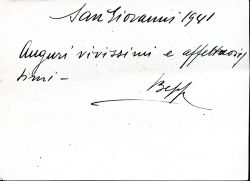 San Giovanni 1941
Auguri vivissimi e affettuosis
simi -
Bepp